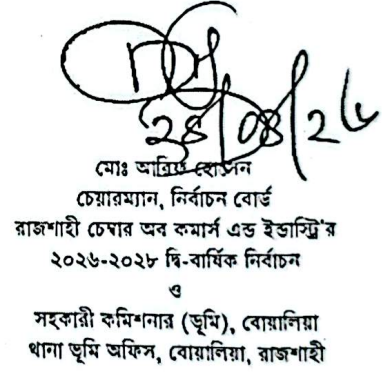 ২৪/০৪/২৬
মোঃ আরিফ হোসেন
চেয়ারম্যান, নির্বাচন বোর্ড
রাজশাহী চেম্বার অব কমার্স এন্ড ইন্ডাস্ট্রি'র
২০২৬-২০২৮ দ্বি-বার্ষিক নির্বাচন
ও
সহকারী কমিশনার (ভূমি), বোয়ালিয়া
থানা ভূমি অফিস, বোয়ালিয়া, রাজশাহী